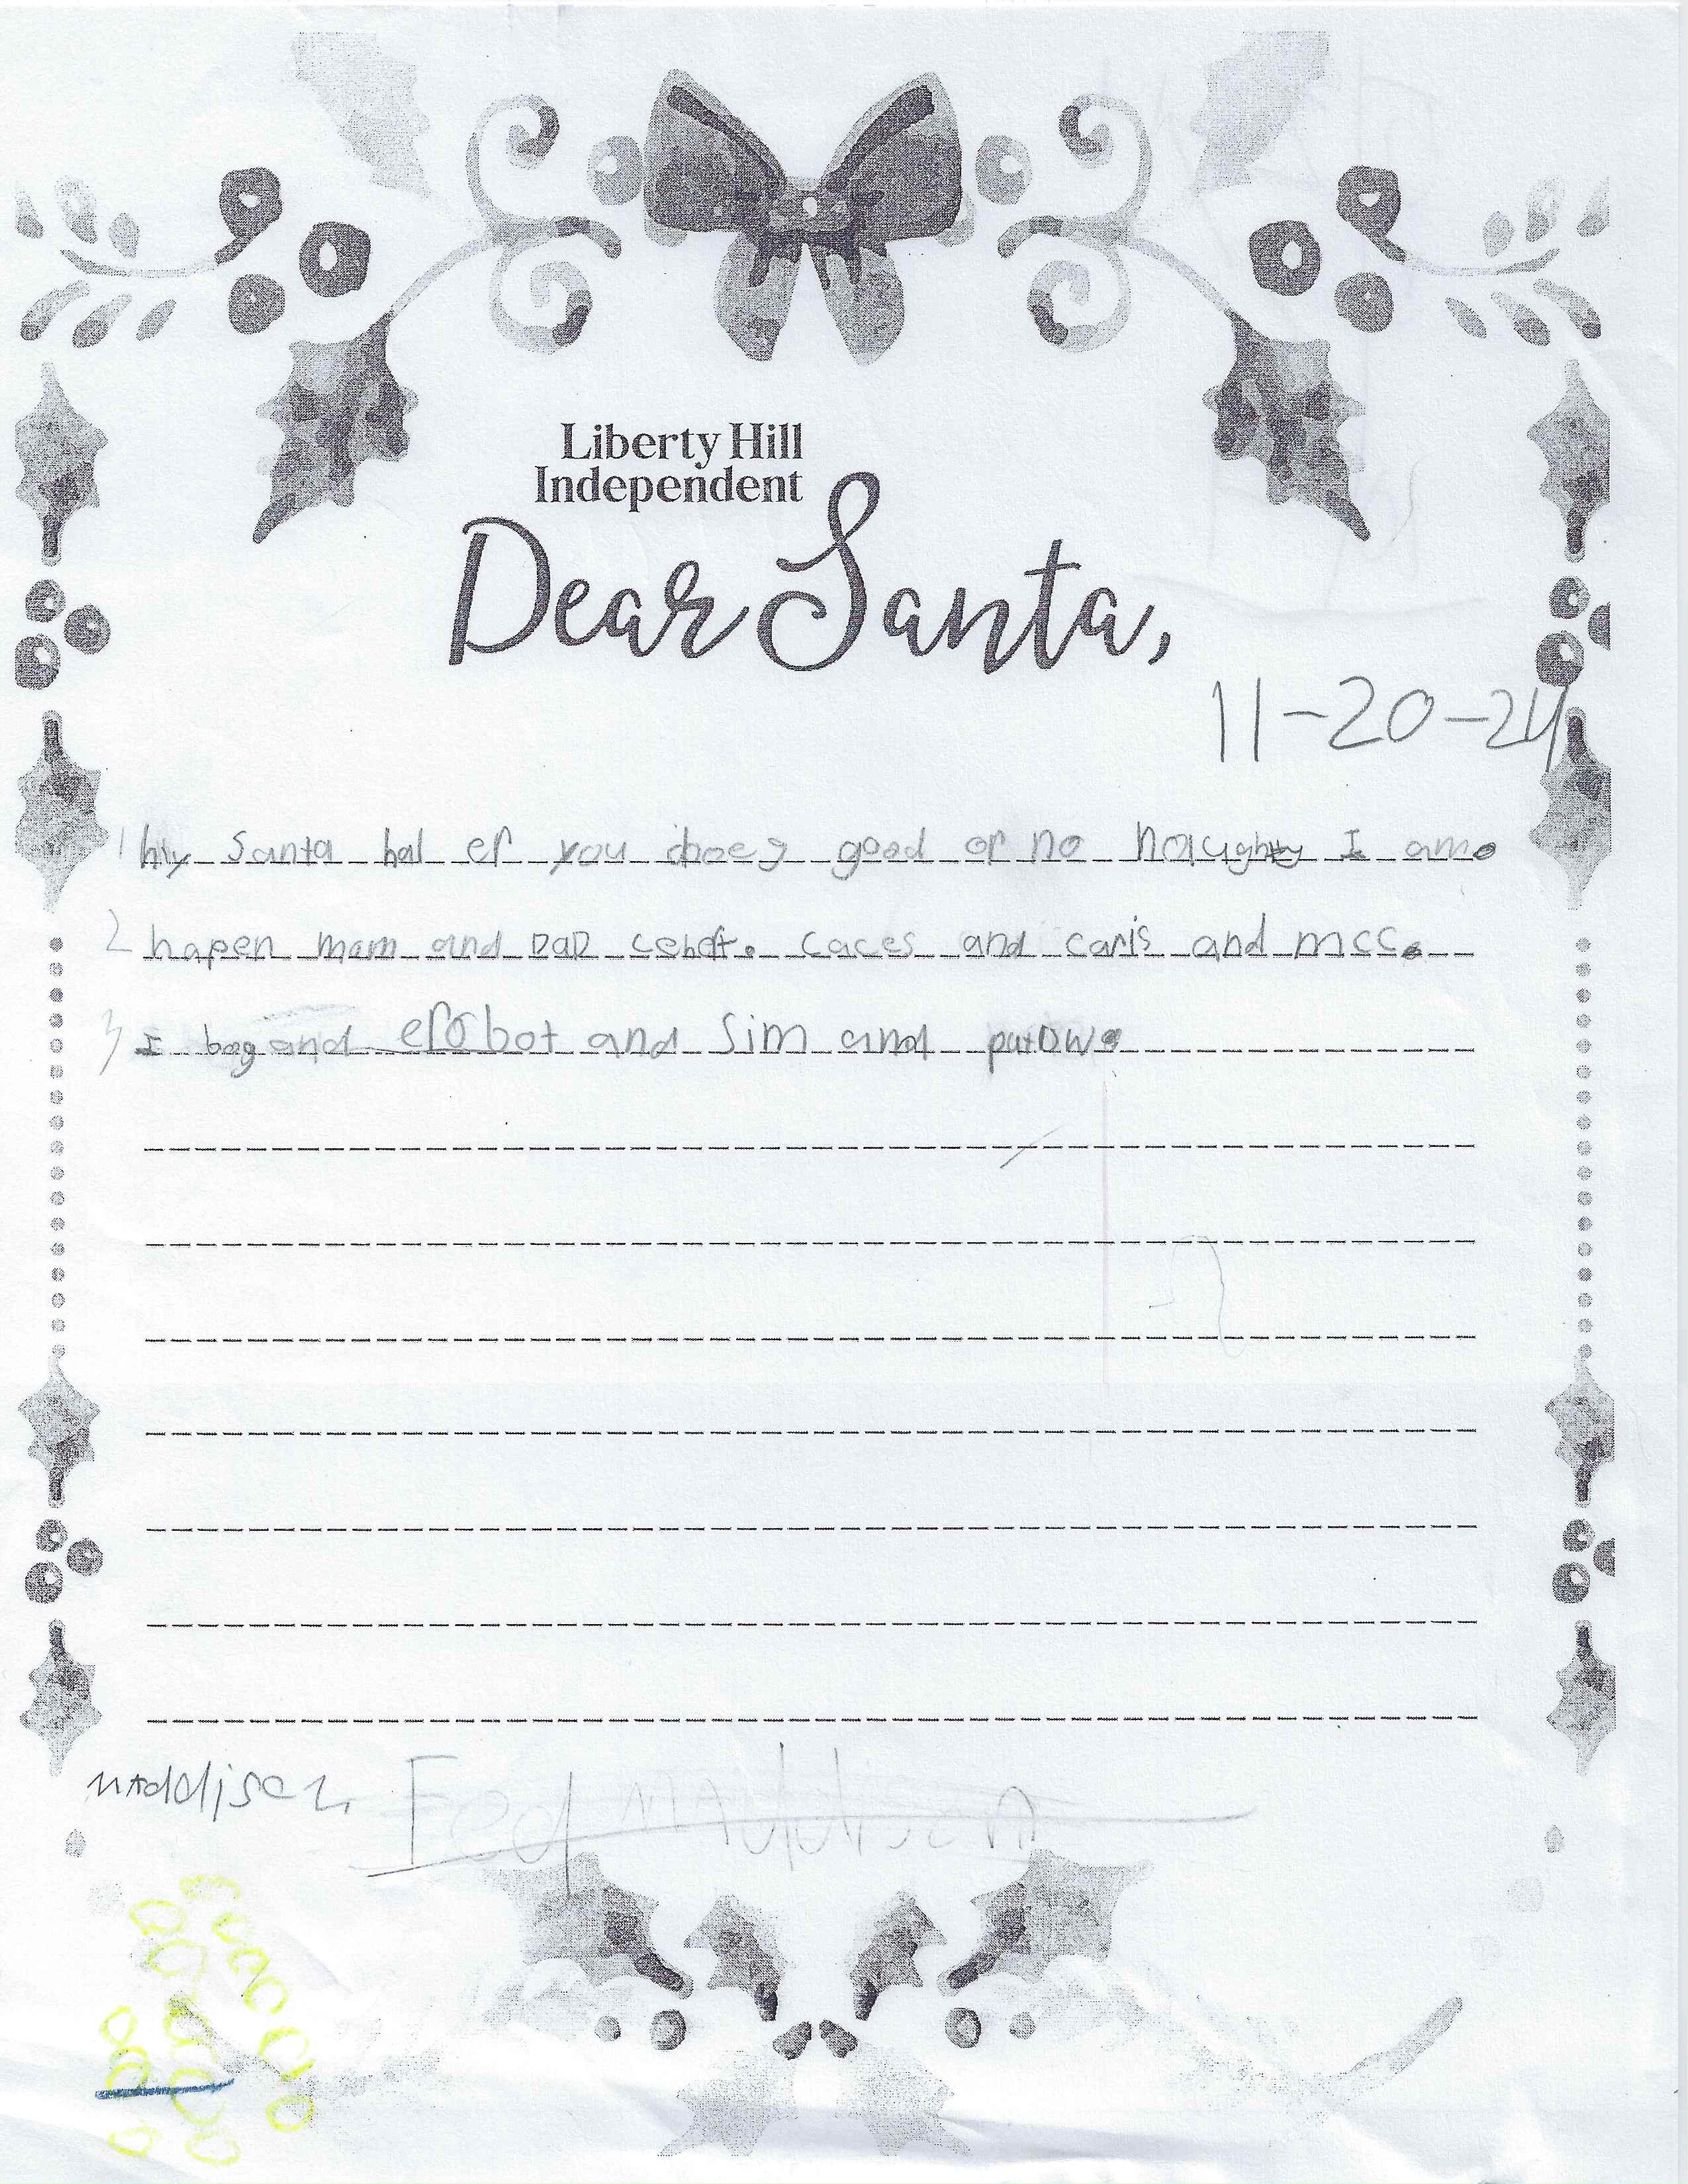 Liberty Hill
Independent
Dear Santa,
11-20-24
1 hiy Santa hal er you doeg good or no naughty I am.
2 hapen mom and DaD cehdt. caces and caris and mcc.
3 I bag and erobot and sim and putDw.
MAddisen